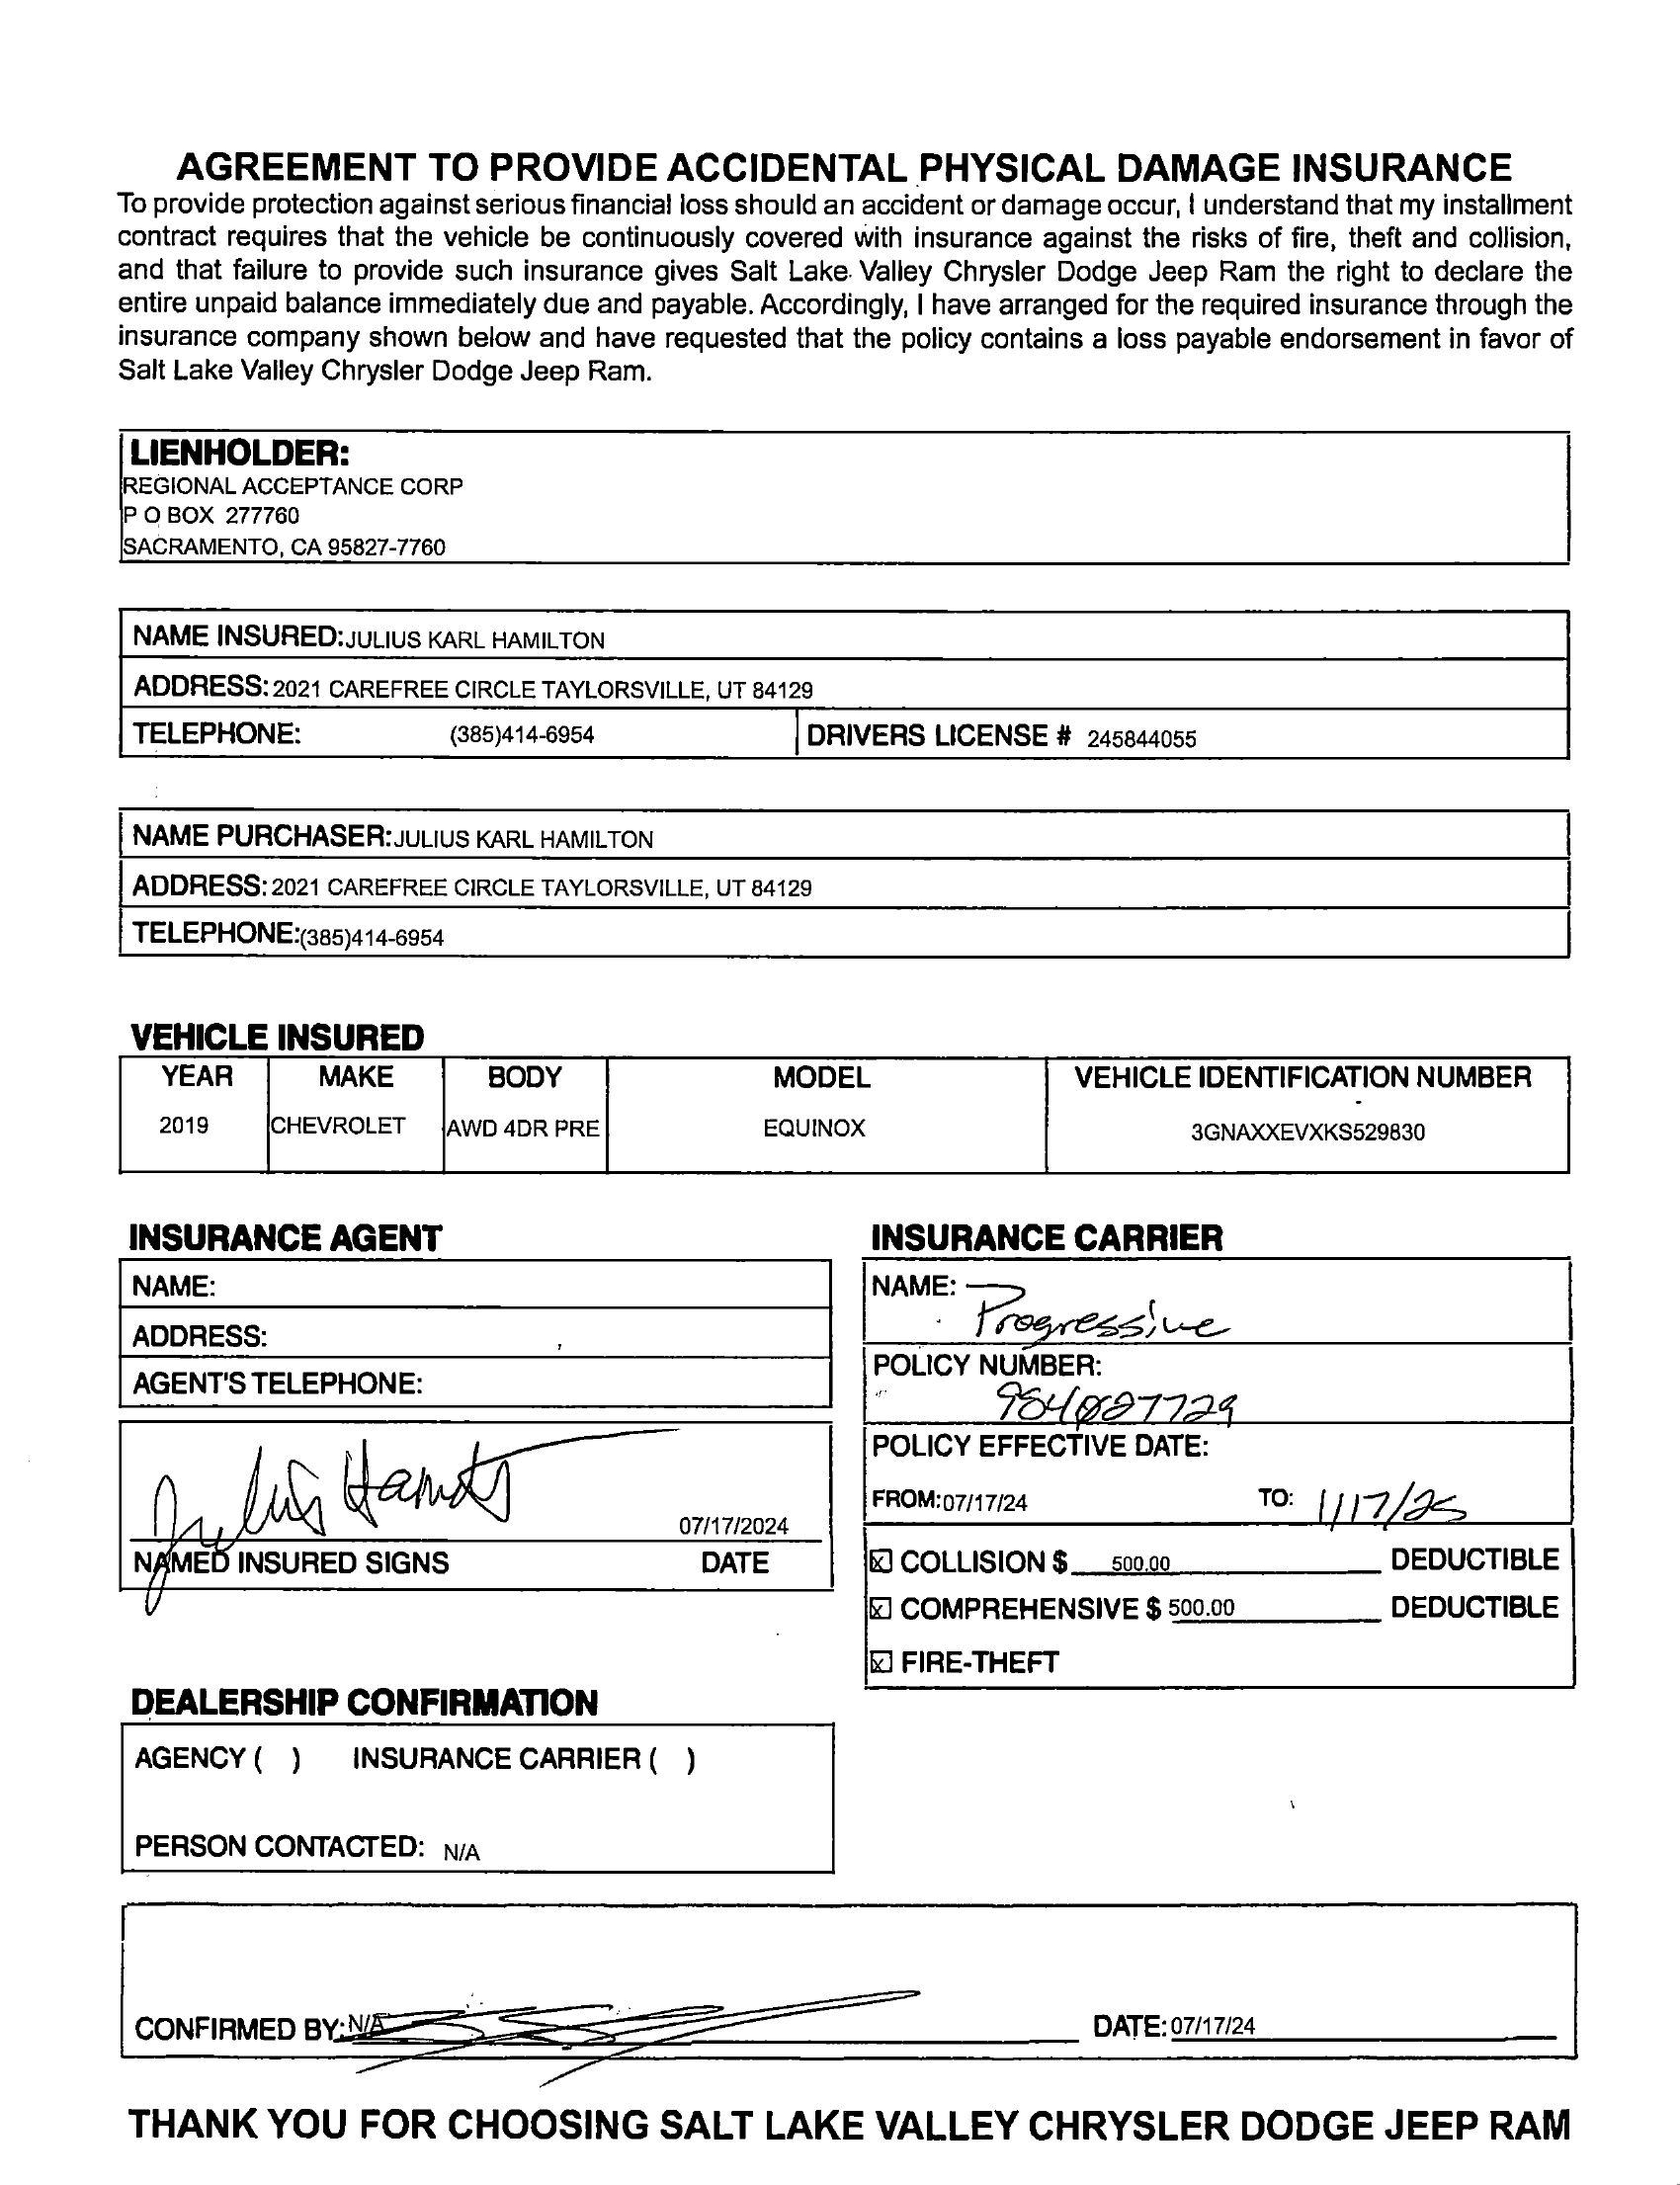 AGREEMENT TO PROVIDE ACCIDENTAL PHYSICAL DAMAGE INSURANCE
To provide protection against serious financial loss should an accident or damage occur, I understand that my installment
contract requires that the vehicle be continuously covered with insurance against the risks of fire, theft and collision,
and that failure to provide such insurance gives Salt Lake Valley Chrysler Dodge Jeep Ram the right to declare the
entire unpaid balance immediately due and payable. Accordingly, I have arranged for the required insurance through the
insurance company shown below and have requested that the policy contains a loss payable endorsement in favor of
Salt Lake Valley Chrysler Dodge Jeep Ram.
LIENHOLDER:
REGIONAL ACCEPTANCE CORP
P O BOX 277760
SACRAMENTO, CA 95827-7760
NAME INSURED: JULIUS KARL HAMILTON
ADDRESS: 2021 CAREFREE CIRCLE TAYLORSVILLE, UT 84129
TELEPHONE: (385)414-6954 DRIVERS LICENSE # 245844055
NAME PURCHASER: JULIUS KARL HAMILTON
ADDRESS: 2021 CAREFREE CIRCLE TAYLORSVILLE, UT 84129
TELEPHONE: (385)414-6954
VEHICLE INSURED
YEAR MAKE BODY MODEL VEHICLE IDENTIFICATION NUMBER
2019 CHEVROLET AWD 4DR PRE EQUINOX 3GNAXXEVXKS529830
INSURANCE AGENT
NAME:
ADDRESS:
AGENT'S TELEPHONE:
07/17/2024
NAMED INSURED SIGNS DATE
INSURANCE CARRIER
NAME: Progressive
POLICY NUMBER:
984027729
POLICY EFFECTIVE DATE:
FROM: 07/17/24 TO: 1/17/25
☒ COLLISION $ 500.00 DEDUCTIBLE
☒ COMPREHENSIVE $ 500.00 DEDUCTIBLE
☒ FIRE-THEFT
DEALERSHIP CONFIRMATION
AGENCY ( ) INSURANCE CARRIER ( )
PERSON CONTACTED: N/A
CONFIRMED BY: N/A DATE: 07/17/24
THANK YOU FOR CHOOSING SALT LAKE VALLEY CHRYSLER DODGE JEEP RAM